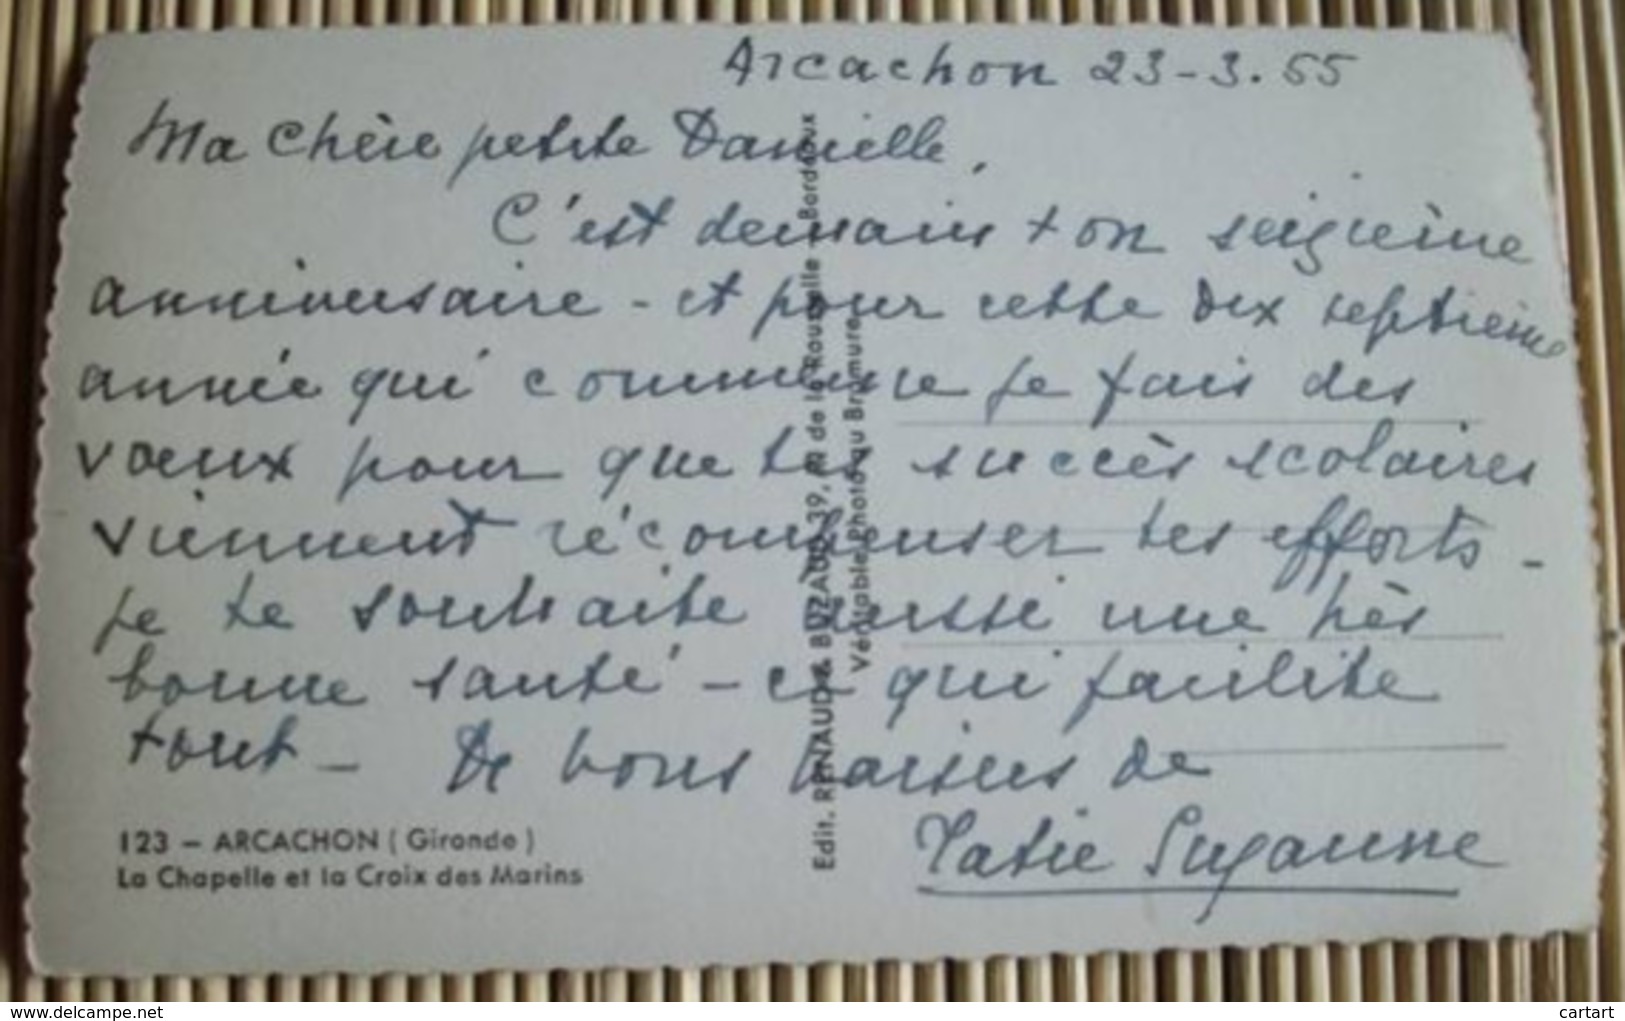 Arcachon 23-3.55
Ma Chère petite Danielle,
C'est demain ton seizième
anniversaire - et pour cette dix septième
année qui commence je fais des
vœux pour que tes succès scolaires
viennent récompenser tes efforts -
je te souhaite aussi une très
bonne santé - ce qui facilite
tout - De bons baisers de
Tatie Suzanne
123 – ARCACHON ( Gironde )
La Chapelle et la Croix des Marins
Edit. RENAUD & BUZAUD 39, R de la Rousselle Bordeaux
Véritable Photo au Bromure
delcampe.net
cartart